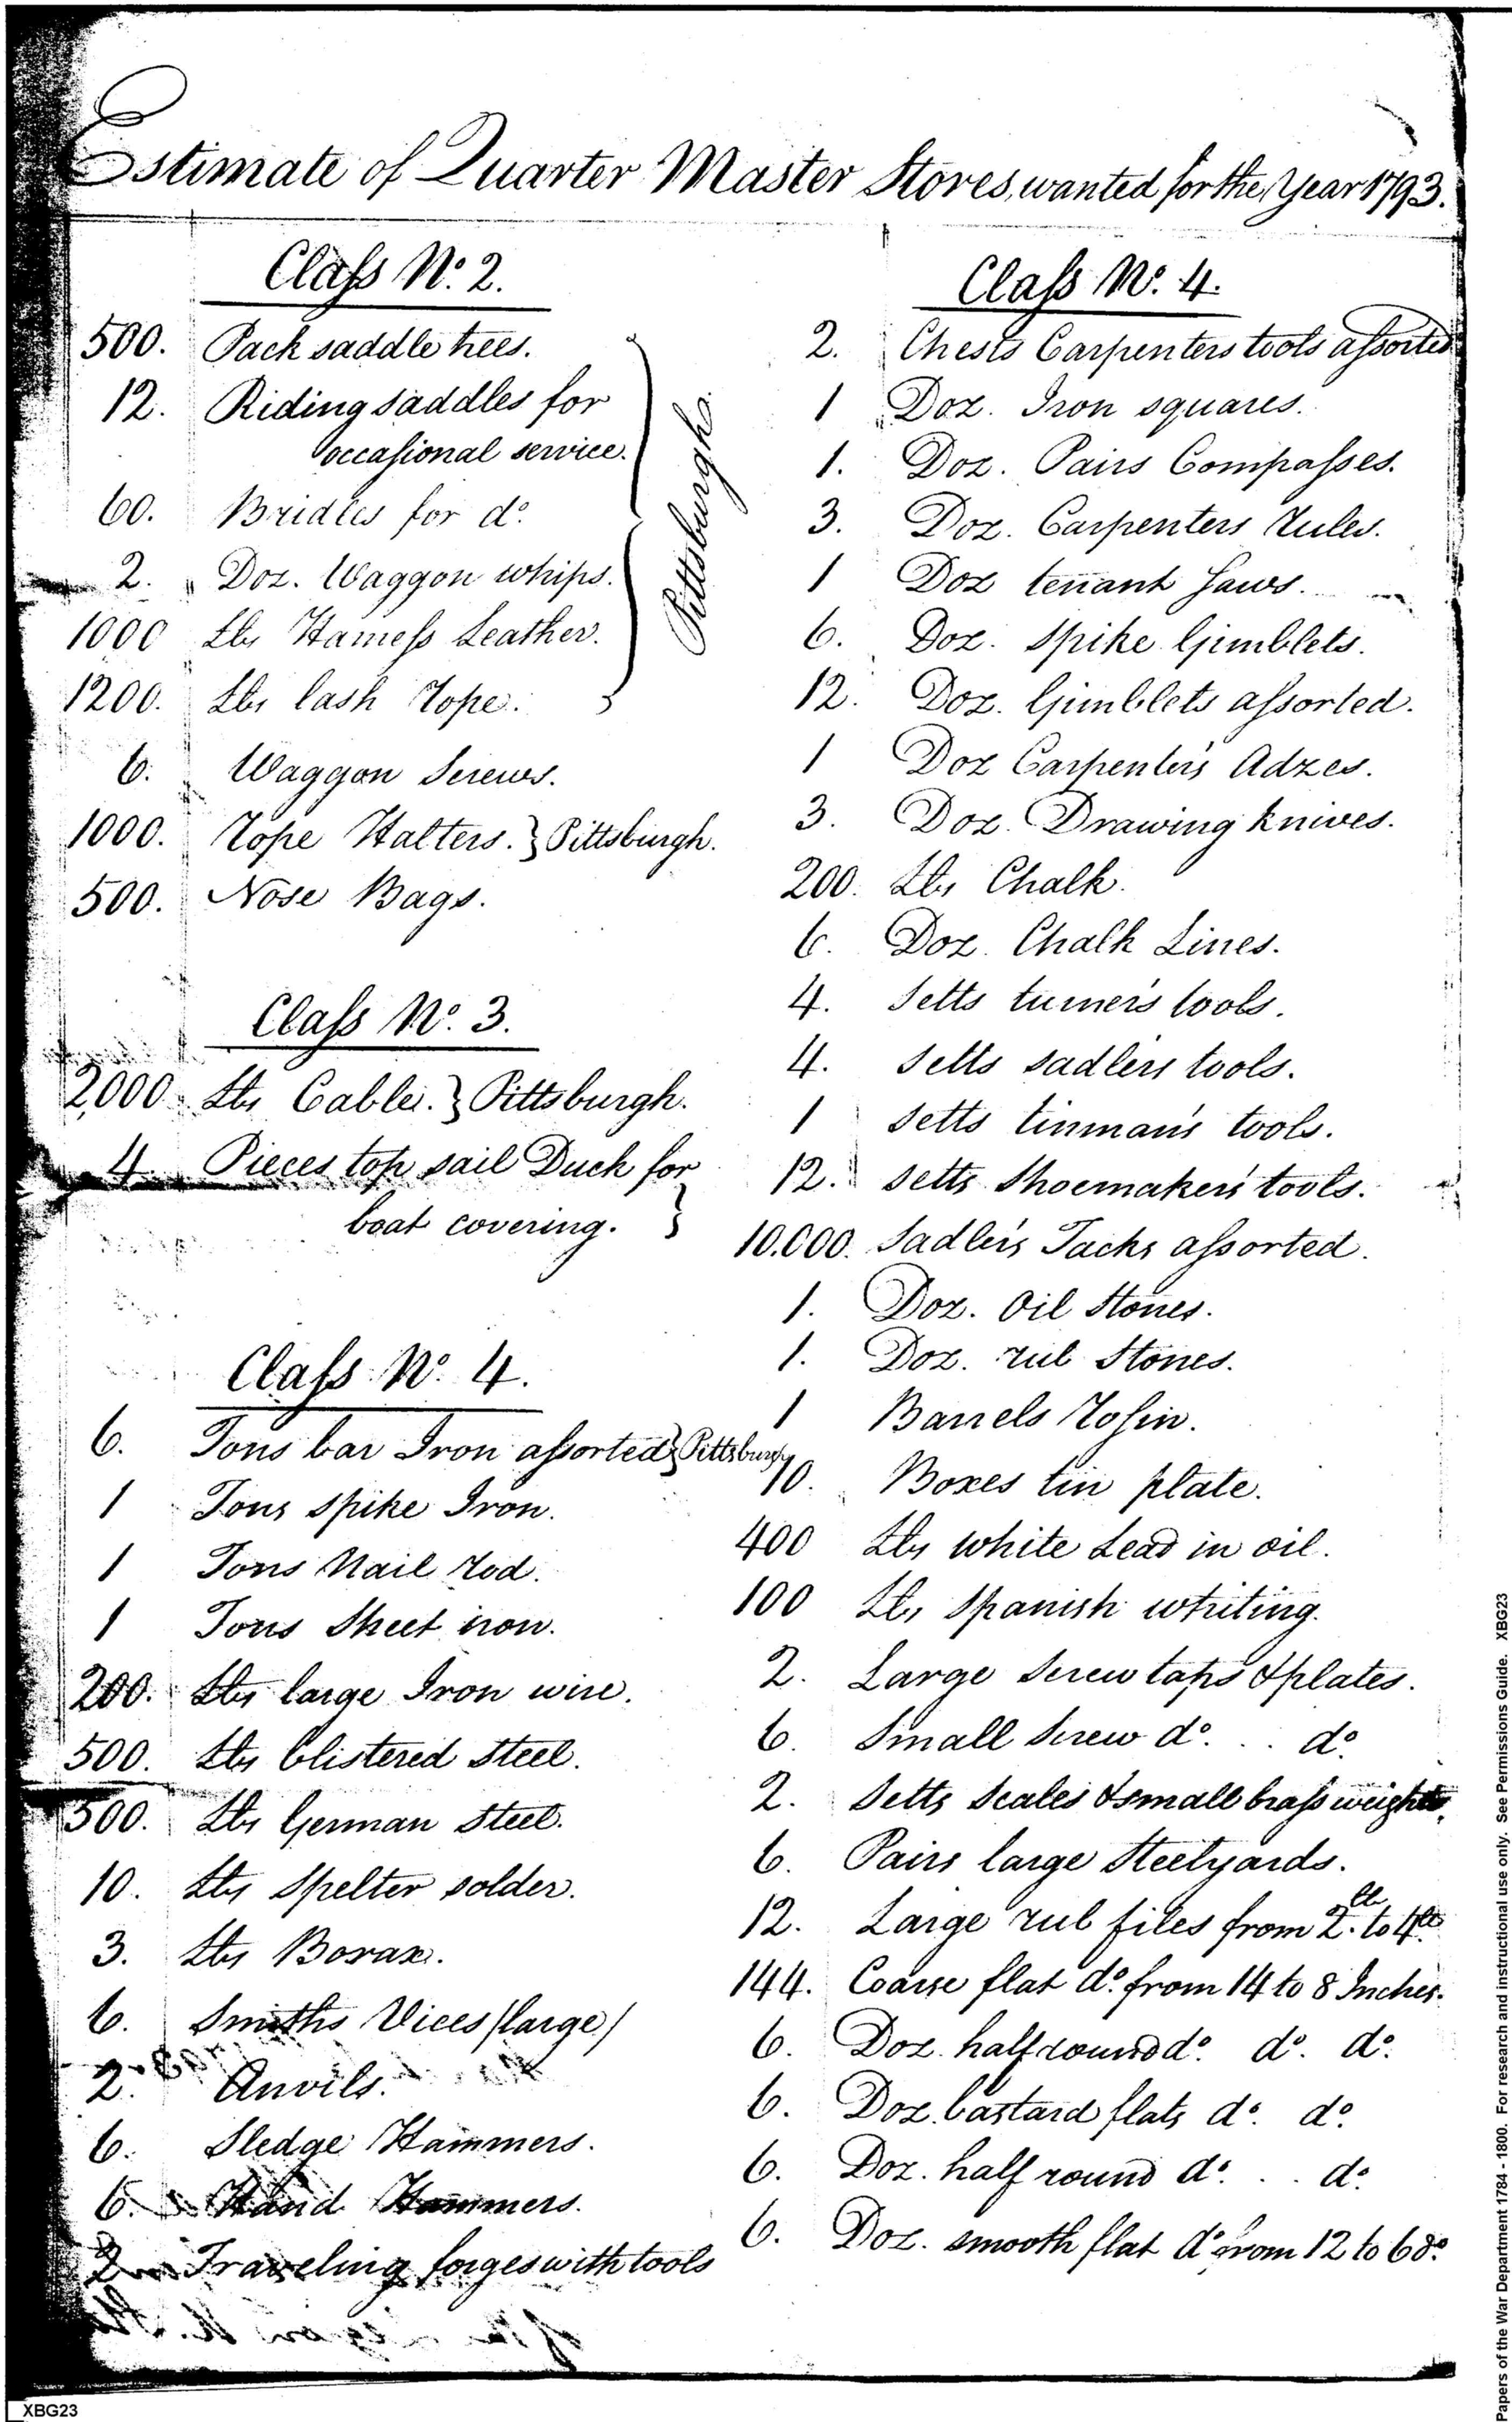 Estimate of Quarter Master Stores, wanted for the Year 1793.
Claſs No. 2.
500. Pack saddle trees.
12. Riding saddles for
occaſional service.
60. Bridles for do.
2. Doz. Waggon whips.
1000 Lbs Harneſs Leather.
1200. Lbs lash rope.
Pittsburgh.
6. Waggon Screws.
1000. Rope Halters. } Pittsburgh.
500. Nose Bags.
Claſs No. 3.
2000 Lbs Cables. } Pittsburgh.
4 Pieces top sail Duck for
boat covering. }
Claſs No. 4.
6. Tons bar Iron aſsorted } Pittsburgh
1 Tons spike Iron.
1 Tons Nail rod.
1 Tons Sheet iron.
200. Lbs large Iron wire.
500. Lbs blistered Steel.
500. Lbs German Steel.
10. Lbs Spelter solder.
3. Lbs Borax.
6. Smiths Vices /large/
2. Anvils.
6. Sledge Hammers.
6. Hand Hammers.
2 Traveling forges with tools
Claſs No. 4.
2. Chests Carpenters tools aſsorted
1 Doz. Iron squares.
1. Doz. Pairs Compaſses.
3. Doz. Carpenters rules.
1 Doz tennant Saws.
6. Doz. Spike Gimblets.
12. Doz. Gimblets aſsorted.
1 Doz Carpenter's Adzes.
3. Doz. Drawing knives.
200. Lbs Chalk.
6. Doz. Chalk Lines.
4. Setts turner's tools.
4. Setts sadlers tools.
1 Setts tinman's tools.
12. Setts Shoemaker's tools.
10.000. Sadler's Tacks aſsorted.
1. Doz. Oil Stones.
1. Doz. rub Stones.
1 Barrels Rosin.
10. Boxes tin plate.
400 Lbs white Lead in oil.
100 Lbs Spanish whiting.
2. Large Screw taps & plates.
6. Small Screw do. . . do.
2. Setts Scales & small braſs weights,
6. Pairs large Steelyards.
12. Large rub files from 2lb. to 4lb.
144. Coarse flat do. from 14 to 8 Inches.
6. Doz. half round do. do. do.
6. Doz. bastard flats do. do.
6. Doz. half round do. . . do.
6. Doz. smooth flat do from 12 to 6 do.
Papers of the War Department 1784 - 1800. For research and instructional use only. See Permissions Guide. XBG23
XBG23